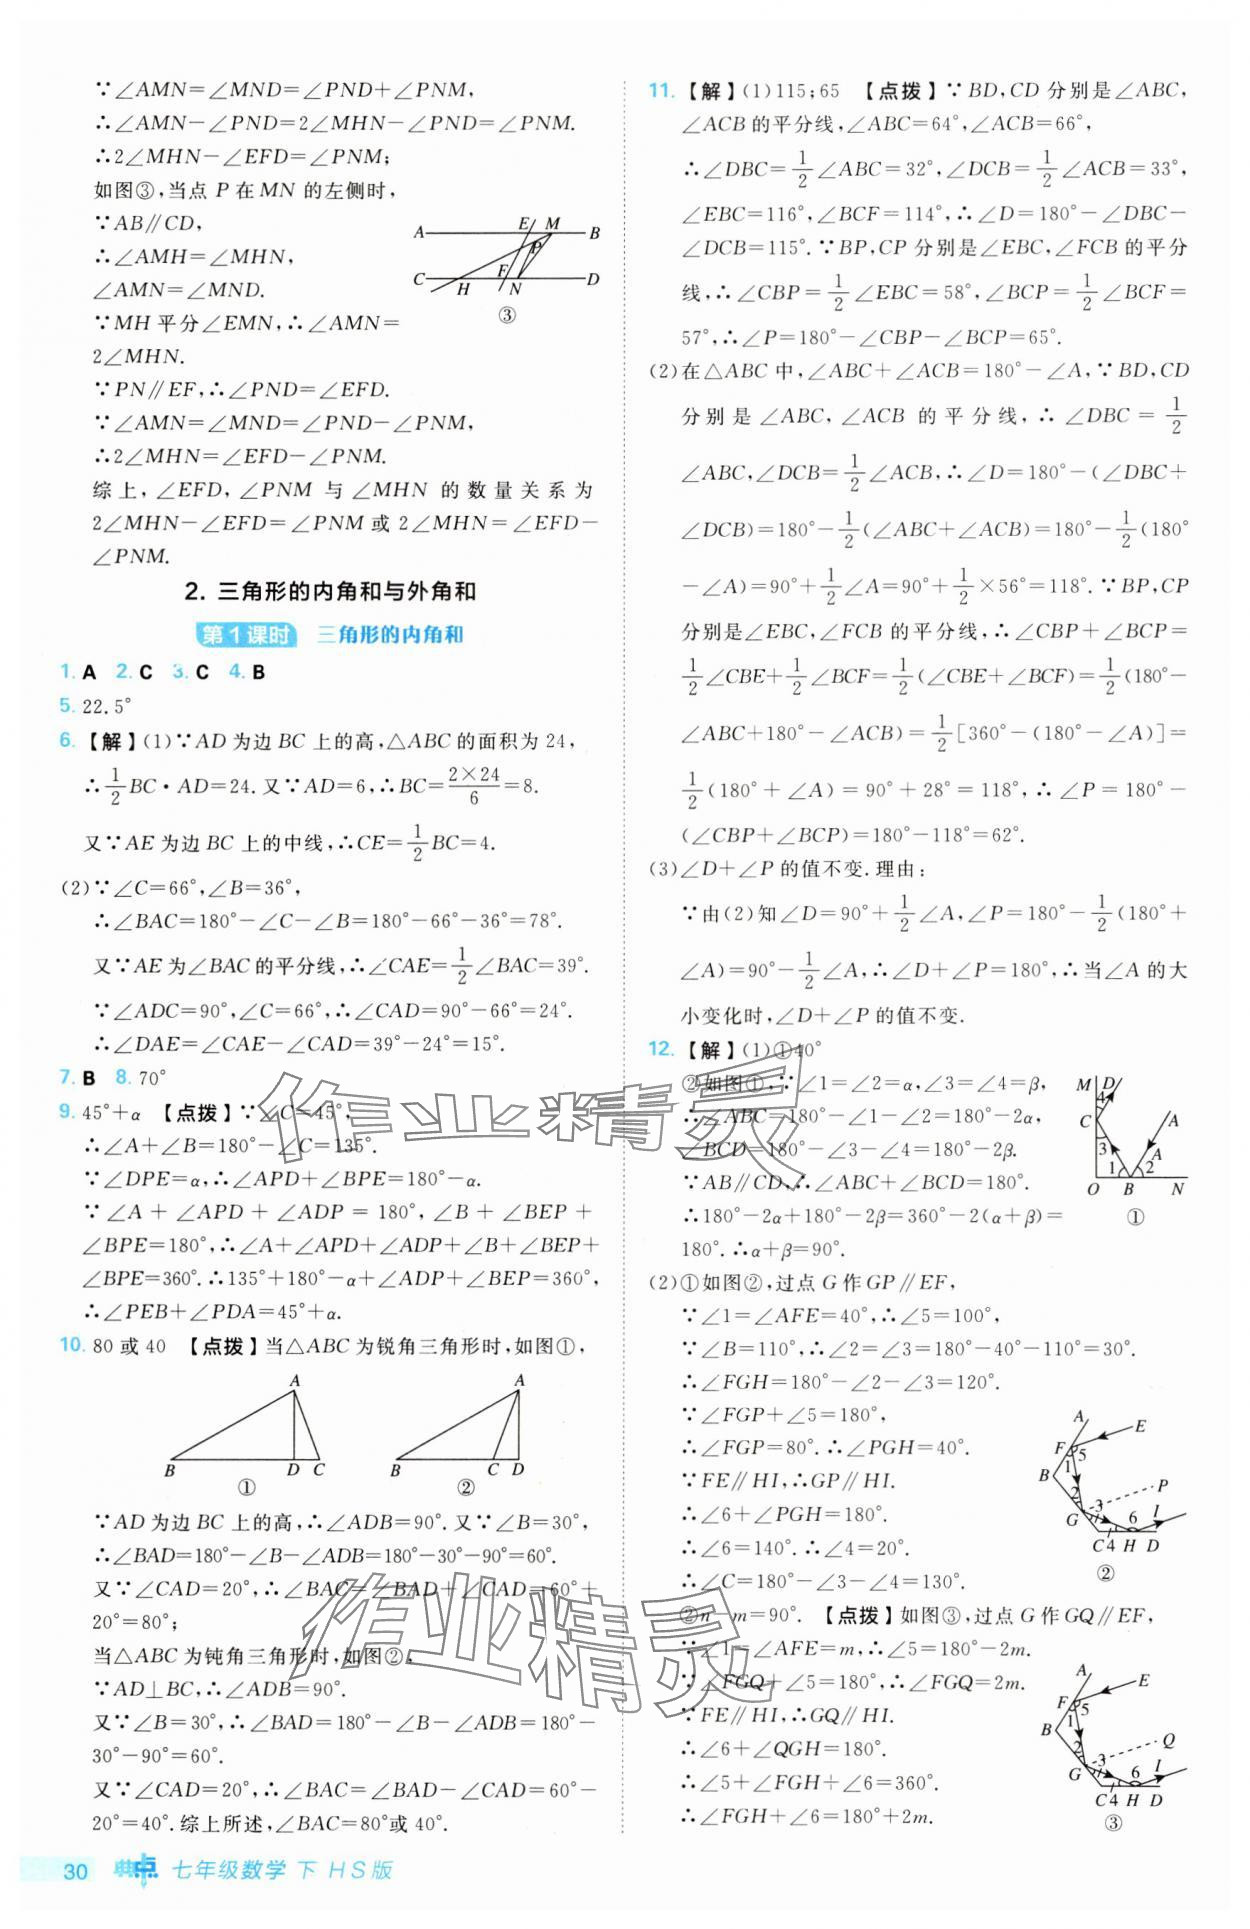 ∵∠AMN=∠MND=∠PND+∠PNM,
∴∠AMN-∠PND=2∠MHN-∠PND=∠PNM.
∴2∠MHN-∠EFD=∠PNM;
如图③,当点 P 在 MN 的左侧时,
∵AB∥CD,
∴∠AMH=∠MHN,
∠AMN=∠MND.
∵MH 平分∠EMN,∴∠AMN=
2∠MHN.
A E M B P C H F N D
③
∵PN∥EF,∴∠PND=∠EFD.
∵∠AMN=∠MND=∠PND-∠PNM,
∴2∠MHN=∠EFD-∠PNM.
综上,∠EFD,∠PNM 与∠MHN 的数量关系为
2∠MHN-∠EFD=∠PNM 或 2∠MHN=∠EFD-
∠PNM.
2. 三角形的内角和与外角和
第 1 课时 三角形的内角和
1. A 2. C 3. C 4. B
5. 22.5°
6. 【解】(1)∵AD 为边 BC 上的高,△ABC 的面积为 24,
∴1/2BC·AD=24.又∵AD=6,∴BC=2×24/6=8.
又∵AE 为边 BC 上的中线,∴CE=1/2BC=4.
(2)∵∠C=66°,∠B=36°,
∴∠BAC=180°-∠C-∠B=180°-66°-36°=78°.
又∵AE 为∠BAC 的平分线,∴∠CAE=1/2∠BAC=39°.
∵∠ADC=90°,∠C=66°,∴∠CAD=90°-66°=24°.
∴∠DAE=∠CAE-∠CAD=39°-24°=15°.
7. B 8. 70°
9. 45°+α 【点拨】∵∠C=45°,
∴∠A+∠B=180°-∠C=135°.
∵∠DPE=α,∴∠APD+∠BPE=180°-α.
∵∠A+∠APD+∠ADP=180°,∠B+∠BEP+
∠BPE=180°,∴∠A+∠APD+∠ADP+∠B+∠BEP+
∠BPE=360°.∴135°+180°-α+∠ADP+∠BEP=360°,
∴∠PEB+∠PDA=45°+α.
10. 80 或 40 【点拨】当△ABC 为锐角三角形时,如图①,
A B D C ①
A B C D ②
∵AD 为边 BC 上的高,∴∠ADB=90°.又∵∠B=30°,
∴∠BAD=180°-∠B-∠ADB=180°-30°-90°=60°.
又∵∠CAD=20°,∴∠BAC=∠BAD+∠CAD=60°+
20°=80°;
当△ABC 为钝角三角形时,如图②,
∵AD⊥BC,∴∠ADB=90°.
又∵∠B=30°,∴∠BAD=180°-∠B-∠ADB=180°-
30°-90°=60°.
又∵∠CAD=20°,∴∠BAC=∠BAD-∠CAD=60°-
20°=40°.综上所述,∠BAC=80°或 40°.
11. 【解】(1)115;65 【点拨】∵BD,CD 分别是∠ABC,
∠ACB 的平分线,∠ABC=64°,∠ACB=66°,
∴∠DBC=1/2∠ABC=32°,∠DCB=1/2∠ACB=33°,
∠EBC=116°,∠BCF=114°,∴∠D=180°-∠DBC-
∠DCB=115°.∵BP,CP 分别是∠EBC,∠FCB 的平分
线,∴∠CBP=1/2∠EBC=58°,∠BCP=1/2∠BCF=
57°,∴∠P=180°-∠CBP-∠BCP=65°.
(2)在△ABC 中,∠ABC+∠ACB=180°-∠A,∵BD,CD
分别是∠ABC,∠ACB 的平分线,∴∠DBC=1/2
∠ABC,∠DCB=1/2∠ACB,∴∠D=180°-(∠DBC+
∠DCB)=180°-1/2(∠ABC+∠ACB)=180°-1/2(180°
-∠A)=90°+1/2∠A=90°+1/2×56°=118°.∵BP,CP
分别是∠EBC,∠FCB 的平分线,∴∠CBP+∠BCP=
1/2∠CBE+1/2∠BCF=1/2(∠CBE+∠BCF)=1/2(180°-
∠ABC+180°-∠ACB)=1/2[360°-(180°-∠A)]=
1/2(180°+∠A)=90°+28°=118°,∴∠P=180°-
(∠CBP+∠BCP)=180°-118°=62°.
(3)∠D+∠P 的值不变.理由:
∵由(2)知∠D=90°+1/2∠A,∠P=180°-1/2(180°+
∠A)=90°-1/2∠A,∴∠D+∠P=180°,∴当∠A 的大
小变化时,∠D+∠P 的值不变.
12. 【解】(1)①40°
②如图①,∵∠1=∠2=α,∠3=∠4=β,
∴∠ABC=180°-∠1-∠2=180°-2α,
∠BCD=180°-∠3-∠4=180°-2β.
∵AB∥CD,∴∠ABC+∠BCD=180°.
∴180°-2α+180°-2β=360°-2(α+β)=
180°.∴α+β=90°.
M D 4 C A 3 A 1 2 O B N
①
(2)①如图②,过点 G 作 GP∥EF,
∵∠1=∠AFE=40°,∴∠5=100°,
∵∠B=110°,∴∠2=∠3=180°-40°-110°=30°.
∴∠FGH=180°-∠2-∠3=120°.
∵∠FGP+∠5=180°,
∴∠FGP=80°.∴∠PGH=40°.
∵FE∥HI,∴GP∥HI.
∴∠6+∠PGH=180°.
∴∠6=140°.∴∠4=20°.
∴∠C=180°-∠3-∠4=130°.
A E F 5 1 B P 2 3 G 6 I C 4 H D
②
②n-m=90°. 【点拨】如图③,过点 G 作 GQ∥EF,
∵∠1=∠AFE=m,∴∠5=180°-2m.
∵∠FGQ+∠5=180°,∴∠FGQ=2m.
∵FE∥HI,∴GQ∥HI.
∴∠6+∠QGH=180°.
∴∠5+∠FGH+∠6=360°.
∴∠FGH+∠6=180°+2m.
A E F 5 1 B Q 2 3 G 6 I C 4 H D
③
作业精灵
作业精灵
30 典点 七年级数学 下 HS版